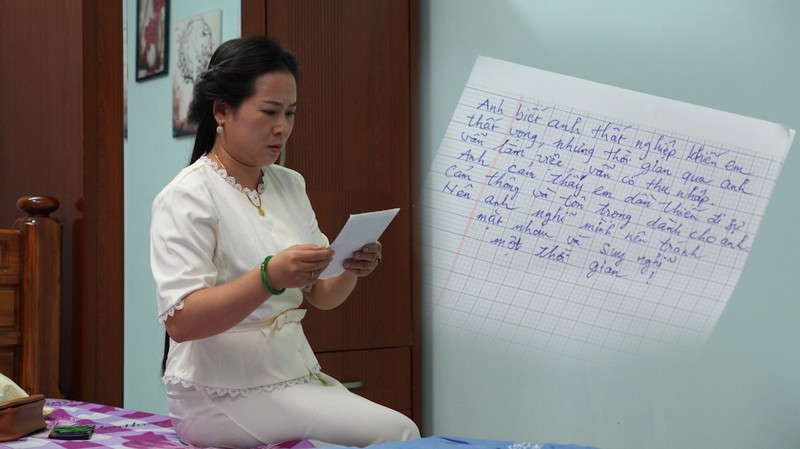 Anh biết anh thất nghiệp khiến em
thất vọng, nhưng thời gian qua anh
vẫn làm việc, vẫn có thu nhập.
Anh cảm thấy em dần thiếu đi sự
cảm thông và tôn trọng dành cho anh
Nên anh nghĩ mình nên tránh
mặt nhau và suy nghĩ
một thời gian!